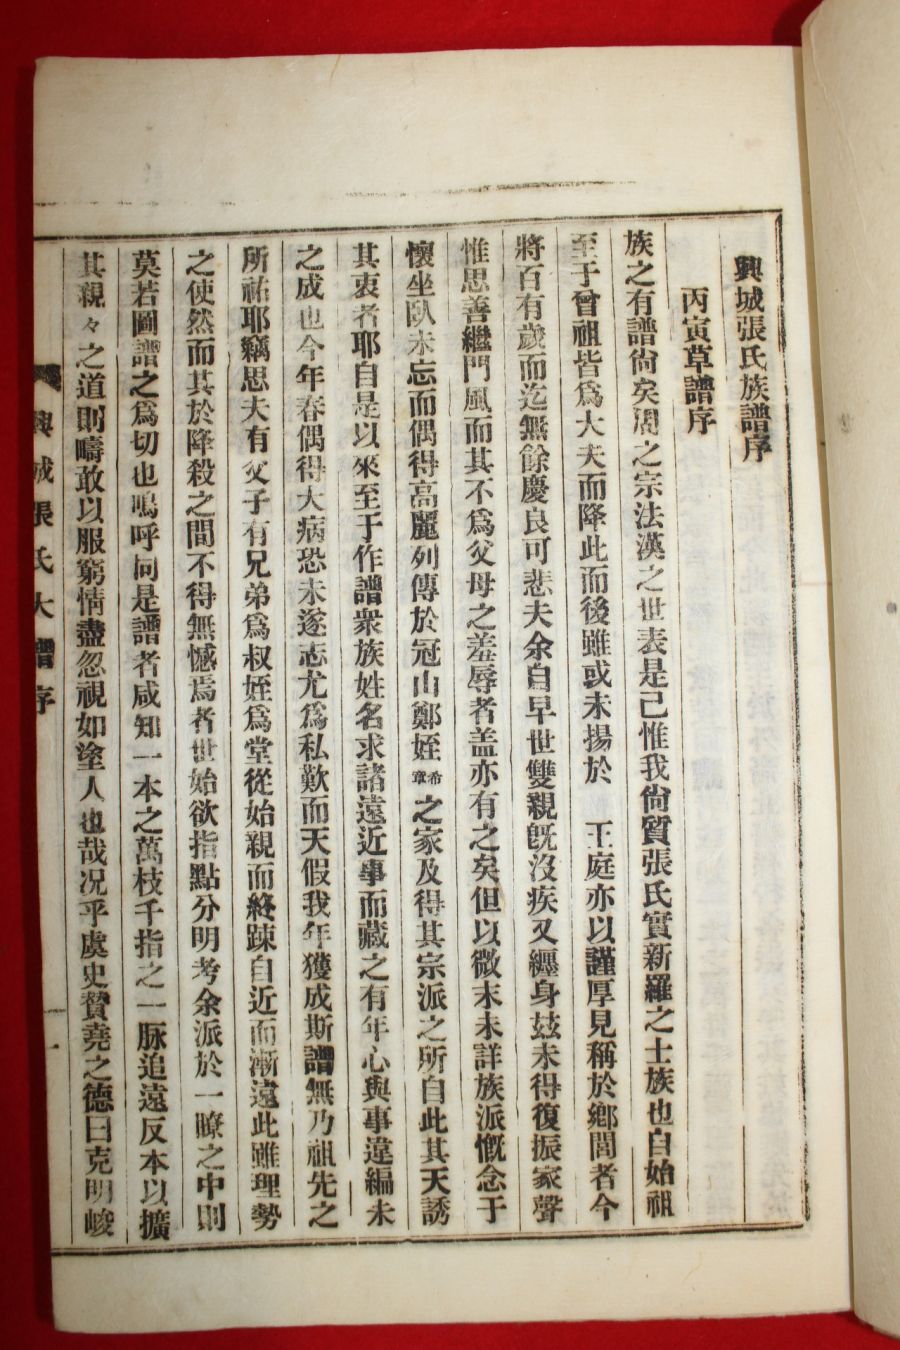 興城張氏族譜序
丙寅草譜序
族之有譜尙矣周之宗法漢之世表是已惟我尙質張氏實新羅之士族也自始祖
至于曾祖皆爲大夫而降此而後雖或未揚於 王庭亦以謹厚見稱於鄕閭者今
將百有歲而迄無餘慶良可悲夫余自早世雙親旣沒疾又纒身玆未得復振家聲
惟思善繼門風而其不爲父母之羞辱者盖亦有之矣但以微末未詳族派慨念于
懷坐臥未忘而偶得高麗列傳於冠山鄭姪希章之家及得其宗派之所自此其天誘
其衷者耶自是以來至于作譜衆族姓名求諸遠近事而藏之有年心與事違編未
之成也今年春偶得大病恐未遂志尤爲私歎而天假我年獲成斯譜無乃祖先之
所祐耶竊思夫有父子有兄弟爲叔姪爲堂從始親而終踈自近而漸遠此雖理勢
之使然而其於降殺之間不得無憾焉者世始欲指點分明考余派於一瞭之中則
莫若圖譜之爲切也嗚呼同是譜者咸知一本之萬枝千指之一脉追遠反本以擴
其親々之道則疇敢以服窮情盡忽視如塗人也哉况乎虞史贊堯之德曰克明峻
興城張氏大譜序
一